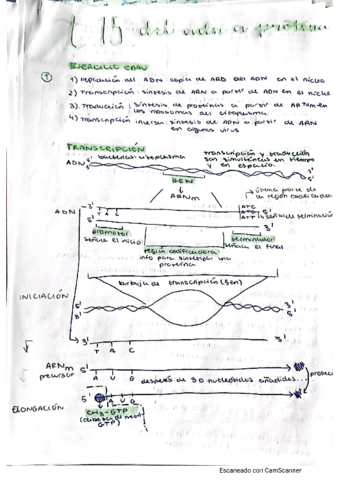 T. 15 del adn a proteína
EJERCICIO EBAU
1) replicación del ADN: copia de ADN del ADN en el núcleo
2) Transcripción: síntesis de ARN a partir de ADN en el núcleo
3) Traducción: síntesis de proteínas a partir de ARNm en
los ribosomas del citoplasma.
4) Transcripción inversa: síntesis de ADN a partir de ARN
en algunos virus
TRANSCRIPCIÓN
bacterias: citoplasma
transcripción y traducción
son simultáneas en tiempo
y en espacio.
ADN 5' 3'
GEN
ARNm
forma parte de
la región codificadora
ADN 5' T A C ATC 3'
ATT es señal de terminación
3' 5'
promotor
señala el inicio
terminador
señala el final
región codificadora
info para sintetizar una
proteína
burbuja de transcripción (gen)
INICIACIÓN
5' 3'
3' 5'
5' T A C 3'
ARNm
precursor 5' A U G
después de 30 nucleótidos añadidos...
5' A U G
ELONGACIÓN
CH3-GTP
GTP)
Escaneado con CamScanner